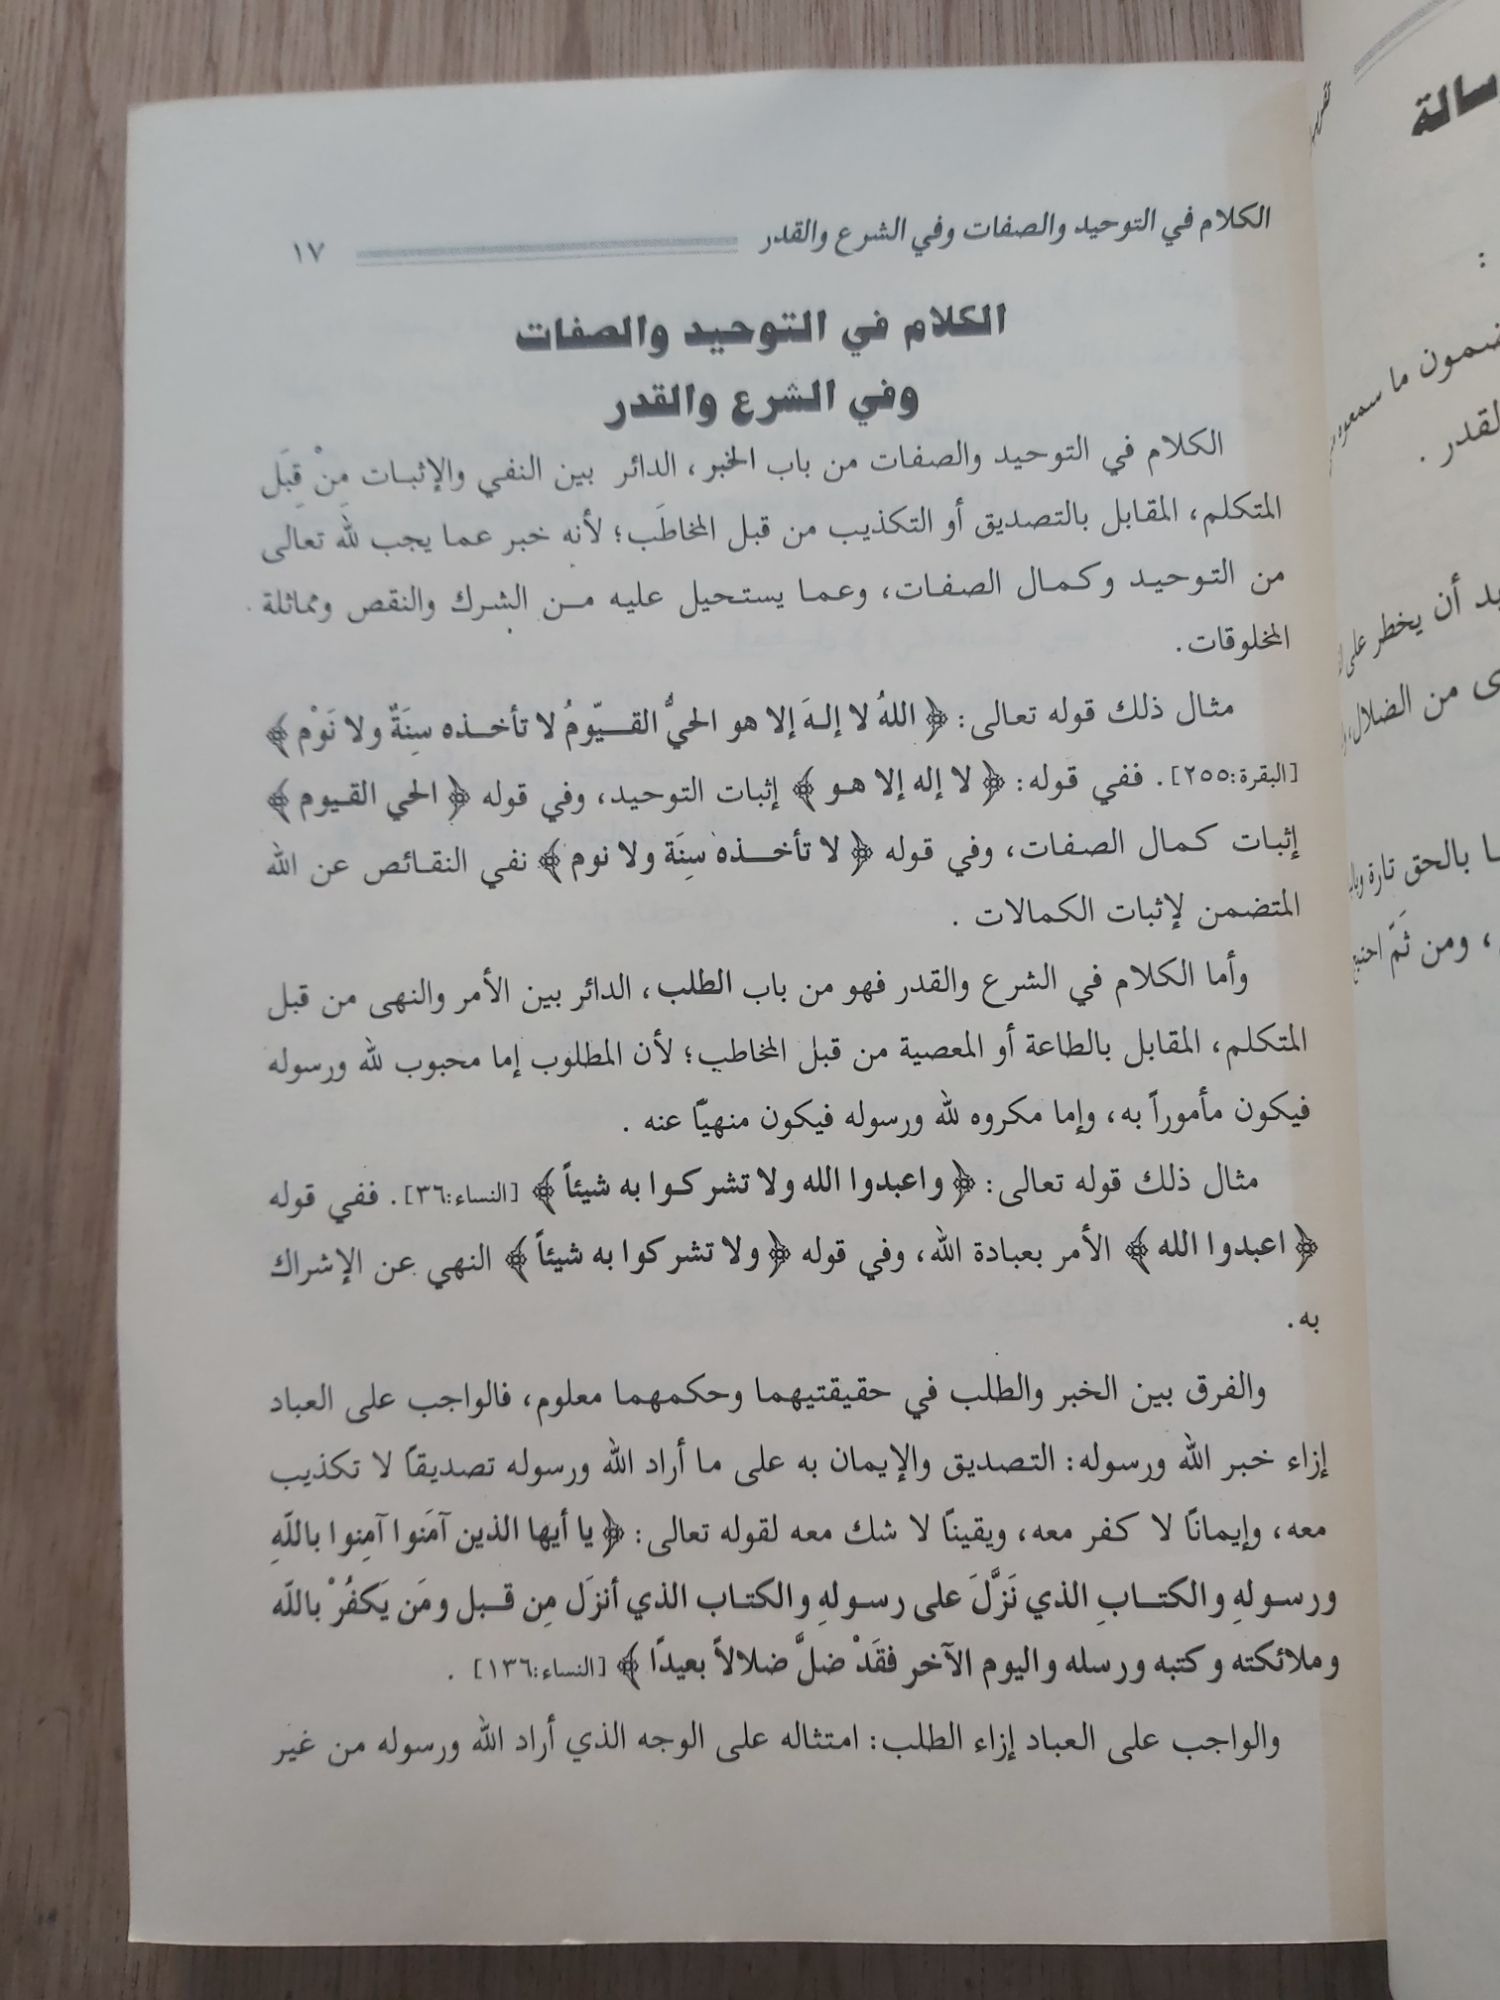 الكلام في التوحيد والصفات وفي الشرع والقدر ١٧
الكلام في التوحيد والصفات
وفي الشرع والقدر
الكلام في التوحيد والصفات من باب الخبر، الدائر بين النفي والإثبات مِنْ قِبَل
المتكلم، المقابل بالتصديق أو التكذيب من قبل المخاطَب؛ لأنه خبر عما يجب لله تعالى
من التوحيد وكمال الصفات، وعما يستحيل عليه من الشرك والنقص ومماثلة
المخلوقات.
مثال ذلك قوله تعالى: ﴿اللهُ لا إلهَ إلا هو الحيُّ القيّومُ لا تأخذه سِنَةٌ ولا نَوْم﴾
[البقرة:٢٥٥]. ففي قوله: ﴿لا إله إلا هو﴾ إثبات التوحيد، وفي قوله ﴿الحي القيوم﴾
إثبات كمال الصفات، وفي قوله ﴿لا تأخذه سِنَة ولا نوم﴾ نفي النقائص عن الله
المتضمن لإثبات الكمالات .
وأما الكلام في الشرع والقدر فهو من باب الطلب، الدائر بين الأمر والنهى من قبل
المتكلم، المقابل بالطاعة أو المعصية من قبل المخاطب؛ لأن المطلوب إما محبوب لله ورسوله
فيكون مأموراً به، وإما مكروه لله ورسوله فيكون منهيّاً عنه .
مثال ذلك قوله تعالى: ﴿واعبدوا الله ولا تشركوا به شيئاً﴾ [النساء:٣٦]. ففي قوله
﴿اعبدوا الله﴾ الأمر بعبادة الله، وفي قوله ﴿ولا تشركوا به شيئاً﴾ النهي عن الإشراك
به.
والفرق بين الخبر والطلب في حقيقتيهما وحكمهما معلوم، فالواجب على العباد
إزاء خبر الله ورسوله: التصديق والإيمان به على ما أراد الله ورسوله تصديقاً لا تكذيب
معه، وإيمانًا لا كفر معه، ويقينًا لا شك معه لقوله تعالى: ﴿يا أيها الذين آمَنوا آمِنوا باللّهِ
ورسولهِ والكتابِ الذي نَزَّلَ على رسولهِ والكتاب الذي أنزَل مِن قبل ومَن يَكفُرْ باللّه
وملائكته وكتبه ورسله واليوم الآخر فقَدْ ضلَّ ضلالاً بعيدًا﴾ [النساء:١٣٦] .
والواجب على العباد إزاء الطلب: امتثاله على الوجه الذي أراد الله ورسوله من غير
سالة
:
ما
القدر .
أن يخطر على
من الضلال،
بالحق تارة
، ومن ثَمّ